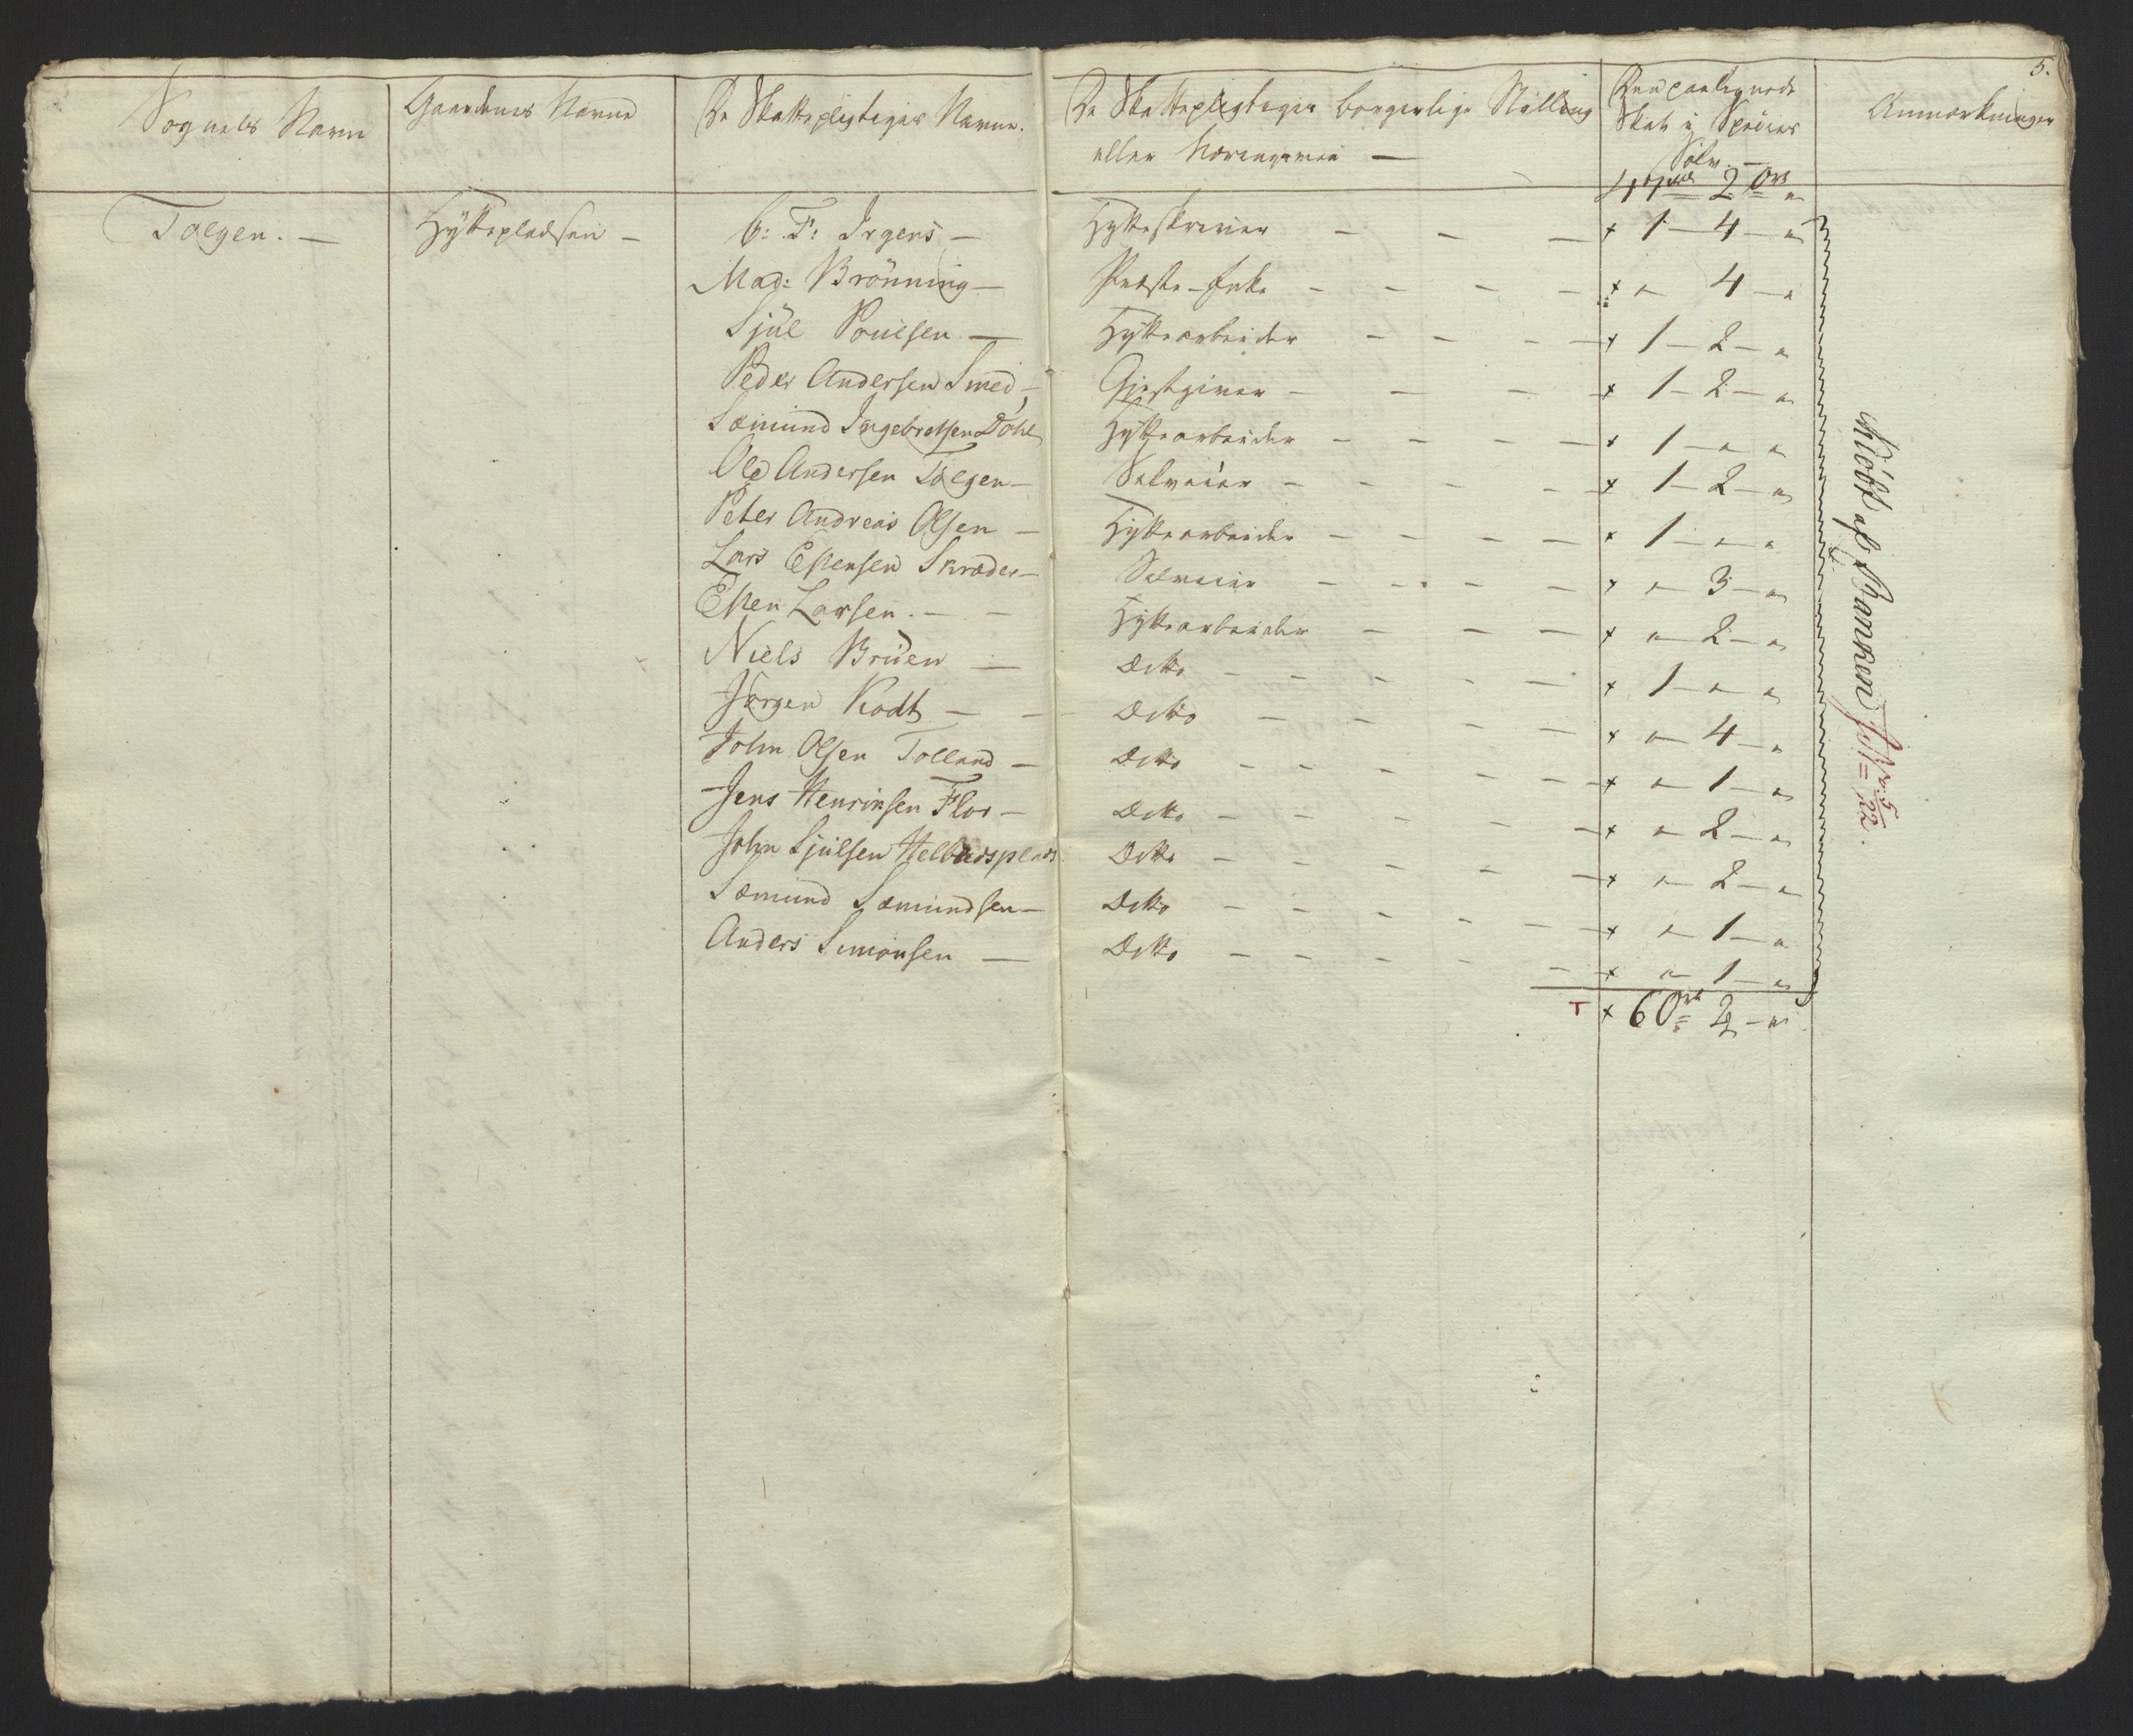 5.
Sognets Navn
Gaardenes Navne
De Skattepligtiges Navne.
De Skattepligtiges borgerlige Stilling
eller Næringsvei —
Den paalignede
Skat i Species
Sølv. —
Anmærkninger
47 2 Ort
Tolgen. — Hyttepladsen — C: F: Irgens — Hytteskriver — — — 1 — 4 — "
Mad: Brönning — Præste-Enke — — — — " — 4 — "
Sjul Poulsen — Hyttearbeider — — — — 1 — 2 — "
Peder Andersen Smed — Gjestgiver — — — — 1 — 2 — "
Sæmund Ingebretsen Dohl Hyttearbeider — — — — 1 — " "
Ole Andersen Tolgen — Selveier — — — — 1 — 2 — "
Peter Andreas Olsen — Hyttearbeider — — — — 1 — " "
Lars Espensen Skræder — Selveier — — — — " — 3 — "
Espen Larsen. — — Hyttearbeider — — — " — 2 — "
Niels Bruen — Ditto — — — — — 1 — " "
Jörgen Kodt — — Ditto — — — — " — 4 — "
John Olsen Tolland — Ditto — — — — — " — 1 — "
Jens Henriksen Flor — Ditto — — — — — " — 2 — "
John Sjulsen Helbadsplads Ditto — — — — — " — 2 — "
Sæmund Sæmundsen — Ditto — — — — — " — 1 — "
Anders Simonsen — Ditto — — — — — " — 1 — "
60 2 — "
Kiöbt af Banken
5/22.